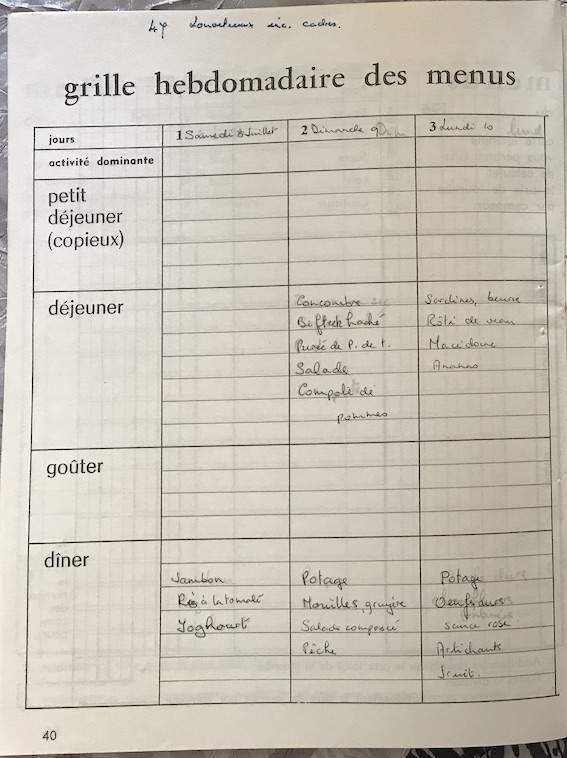 47 Louveteaux inc. cadres.
grille hebdomadaire des menus
jours
1 Samedi 8 Juillet
2 Dimanche 9
3 Lundi 10
activité dominante
petit
déjeuner
(copieux)
déjeuner
Concombre
Bifteck haché
Purée de P. de t.
Salade
Compote de
pommes
Sardines, beurre
Rôti de veau
Macédoine
Ananas
goûter
dîner
Jambon
Riz à la tomate
Yoghourt
Potage
Nouilles, gruyère
Salade composée
Pêche
Potage
Oeufs durs
sauce rose
Artichauts
Fruit.
40